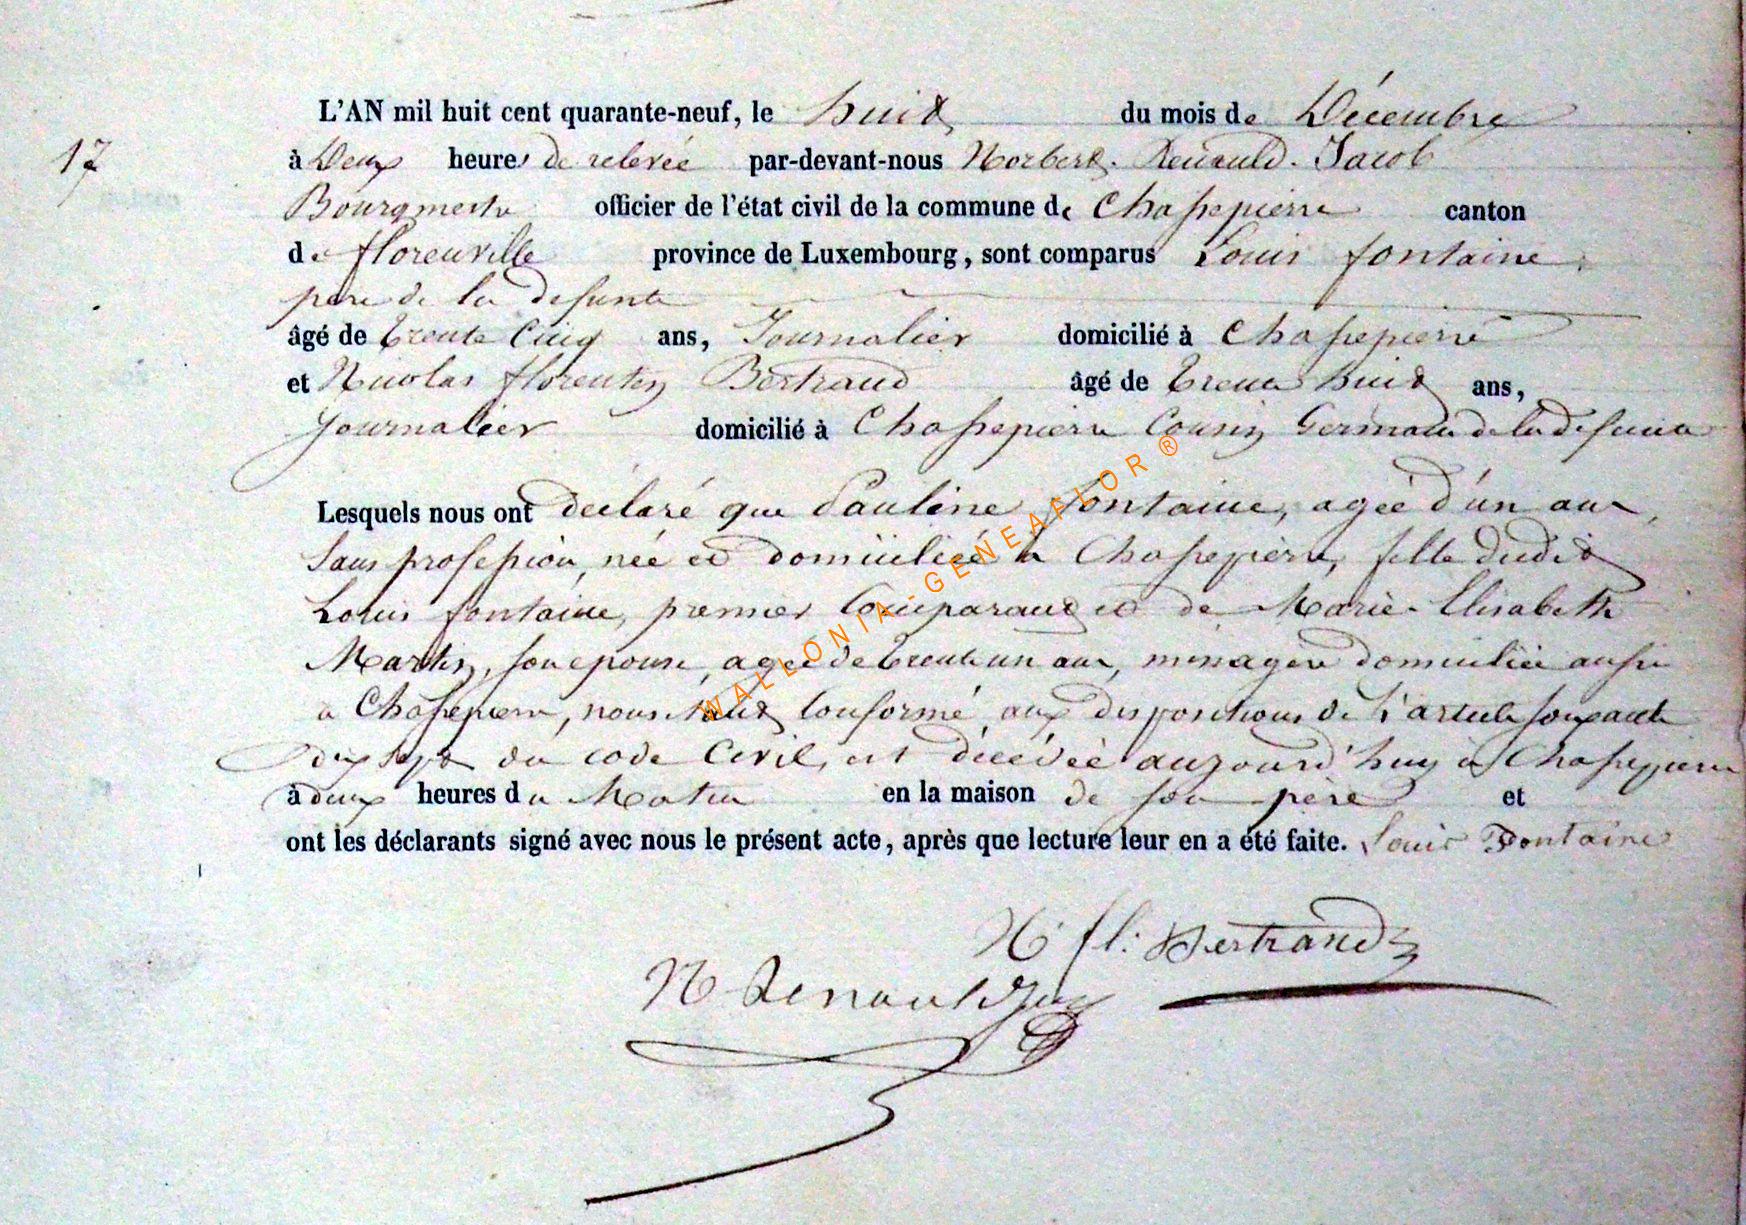 L'AN mil huit cent quarante-neuf, le huit du mois de Décembre
17 à Deux heures de relevée par-devant-nous Norbert Renauld Jacob
Bourgmestre officier de l'état civil de la commune de Chassepierre canton
de florenville province de Luxembourg, sont comparus Louis fontaine,
père de la defunte
âgé de trente Cinq ans, Journalier domicilié à Chassepierre
et Nicolas florentin Bertrand âgé de trente huit ans,
Journalier domicilié à Chassepierre Cousin Germain de la defunte
Lesquels nous ont déclaré que Pauline fontaine, agée d'un an,
sans profession, née et domiciliée à Chassepierre, fille dudit
Louis fontaine, premier Comparant et de Marie-Elisabeth
Martin, son epouse, agée de trente un ans, menagère domiciliée aussi
a Chassepierre, conformé aux dispositions de l'article soixante
dix sept du code Civil, est décédée aujourd'huy à Chassepierre
à deux heures du Matin en la maison de son père et
ont les déclarants signé avec nous le présent acte, après que lecture leur en a été faite. Louis Fontaine
N fl: Bertrand
N Renauld
WALLONIA-GENEAFLOR ®